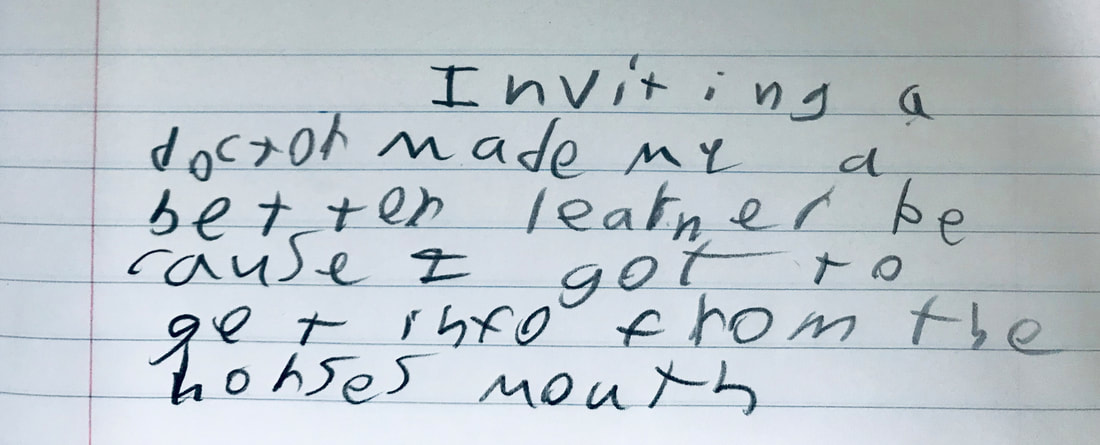 Inviting a
doctor made me a
better learner be
cause I got to
get info from the
horses mouth